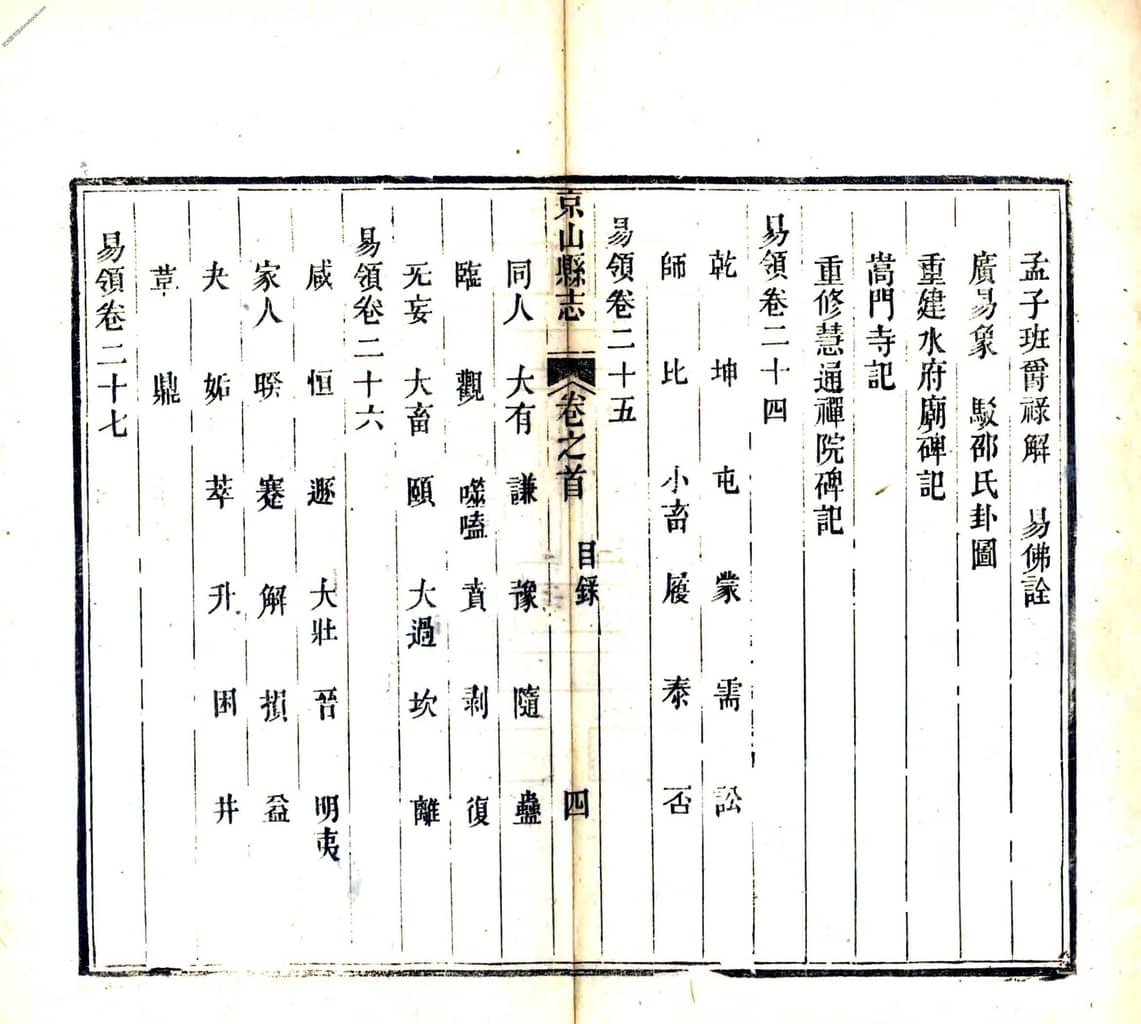 孟子班爵祿解　易佛詮
廣易象　駁邵氏卦圖
重建水府廟碑記
嵩門寺記
重修慧通禪院碑記
易領卷二十四
乾　坤　屯　蒙　需　訟
師　比　小畜　履　泰　否
易領卷二十五
京山縣志　卷之首　目錄　四
同人　大有　謙　豫　隨　蠱
臨　觀　噬嗑　賁　剥　復
无妄　大畜　頤　大過　坎　離
易領卷二十六
咸　恒　遯　大壯　晉　明夷
家人　睽　蹇　解　損　益
夬　姤　萃　升　困　井
革　鼎
易領卷二十七